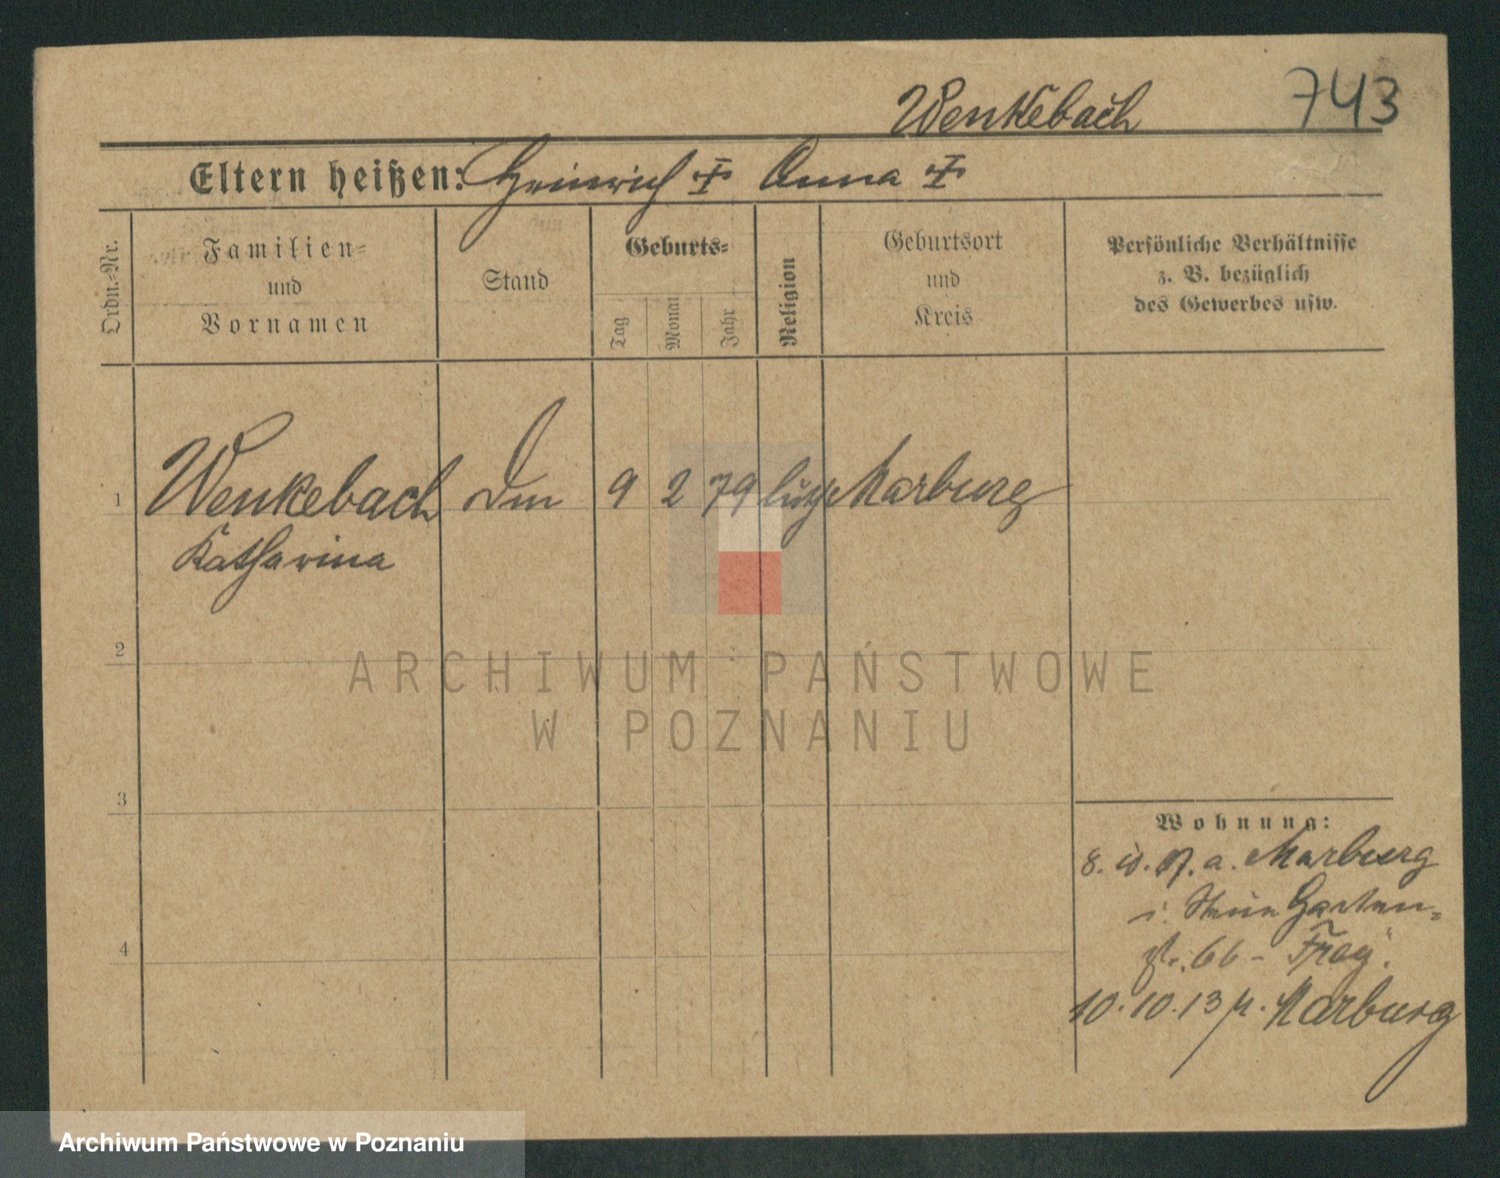 Wenkebach 743
Eltern heißen: Heinrich Anna
Ordn.-Nr.
Familien-
und
Vornamen
Stand
Geburts-
Tag
Monat
Jahr
Religion
Geburtsort
und
Kreis
Persönliche Verhältnisse
z. B. bezüglich
des Gewerbes usw.
1 Wenkebach 9 2 79 luth Marburg
Katharina
2
ARCHIWUM PAŃSTWOWE
W POZNANIU
3
Wohnung:
8. a. Marburg
i. Garten-
str. 66 - Frey.
4
10.10.13 Marburg
Archiwum Państwowe w Poznaniu